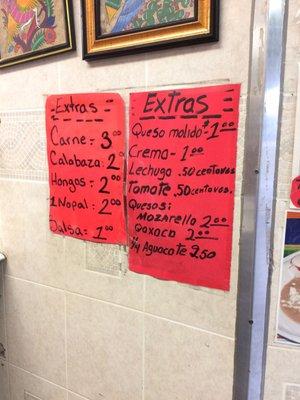 -Extras=
Carne - 3.00
Calabaza - 2.00
Hongos - 2.00
1 Nopal - 2.00
Salsa - 1.00
=Extras=
Queso molido $1.00
Crema - 1.00
Lechuga .50 centavos
Tomate .50 centavos.
Quesos;
Mozarella 2.00
Oaxaca 2.00
1/4 Aguacate 2.50